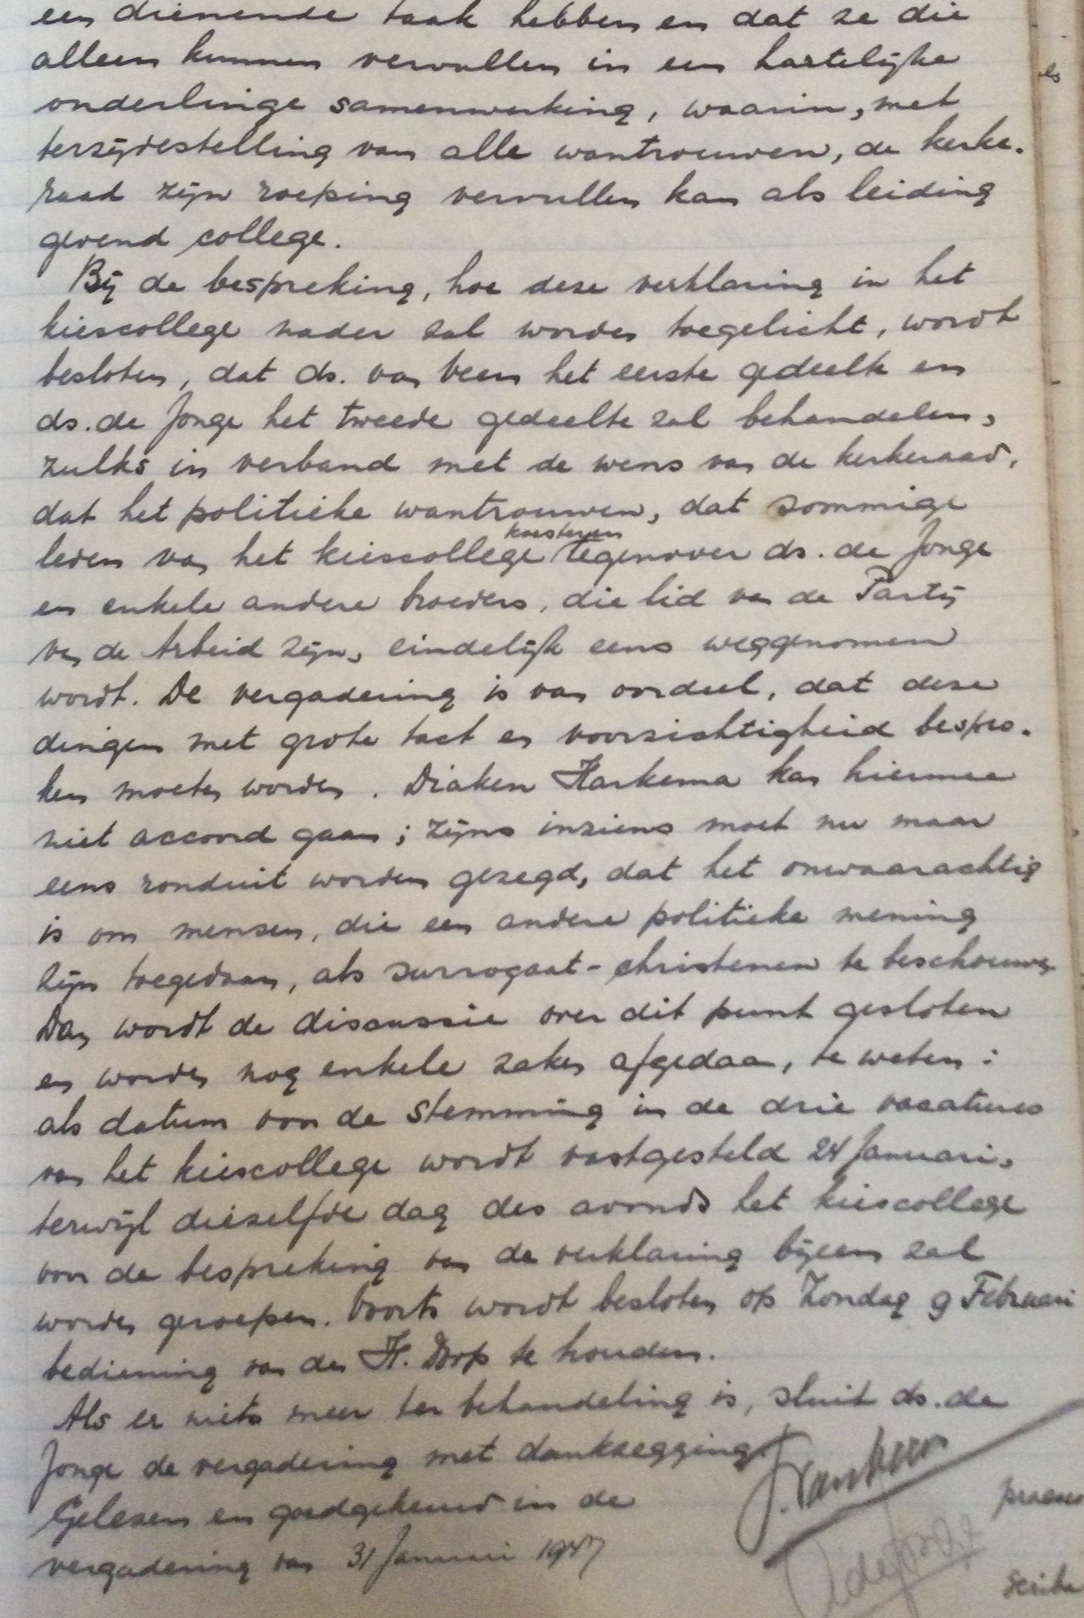 een dienende taak hebben en dat ze die
alleen kunnen vervullen in een hartelijke
onderlinge samenwerking, waarin, met
terzijdestelling van alle wantrouwen, de kerke-
raad zijn roeping vervullen kan als leiding
gevend college.
Bij de bespreking, hoe deze verklaring in het
kiescollege nader zal worden toegelicht, wordt
besloten, dat ds. van Veen het eerste gedeelte en
ds. de Jonge het tweede gedeelte zal behandelen,
zulks in verband met de wens van de kerkeraad,
dat het politieke wantrouwen, dat sommige
koesteren
leden van het kiescollege tegenover ds. de Jonge
en enkele andere broeders, die lid van de Partij
van de Arbeid zijn, eindelijk eens weggenomen
wordt. De vergadering is van oordeel, dat deze
dingen met grote tact en voorzichtigheid bespro-
ken moeten worden. Diaken Harkema kan hiermee
niet accoord gaan; zijns inziens moet nu maar
eens ronduit worden gezegd, dat het onwaarachtig
is om mensen, die een andere politieke mening
zijn toegedaan, als surrogaat-christenen te beschouwen.
Dan wordt de discussie over dit punt gesloten
en worden nog enkele zaken afgedaan, te weten:
als datum voor de stemming in de drie vacatures
van het kiescollege wordt vastgesteld 24 Januari,
terwijl diezelfde dag des avonds het kiescollege
voor de bespreking van de verklaring bijeen zal
worden geroepen. Voorts wordt besloten op Zondag 9 Februari
bediening van den H. Doop te houden.
Als er niets meer ter behandeling is, sluit ds. de
Jonge de vergadering met dankzegging.
J. van Veen
Gelezen en goedgekeurd in de
praeses
vergadering van 31 Januari 1947
de Jonge
scriba